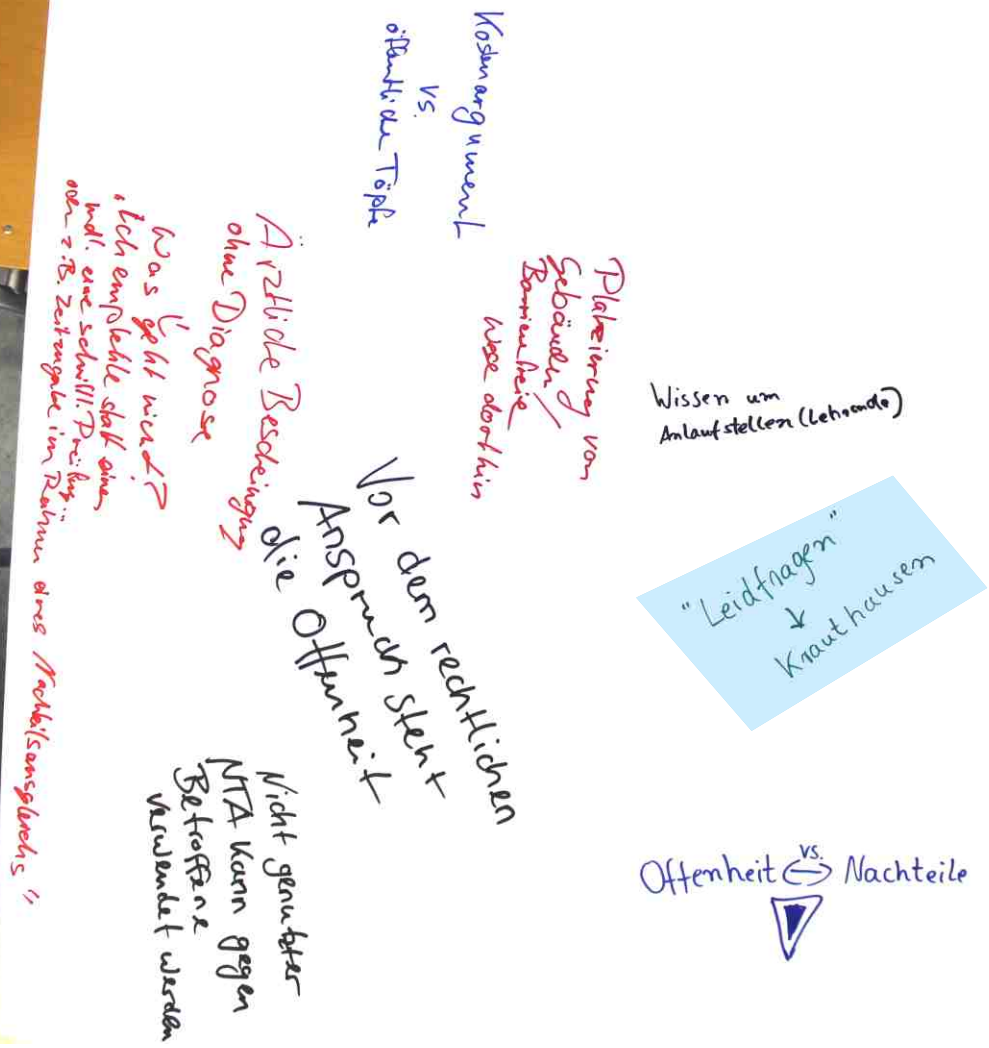 Kostenargument
vs.
öffentliche Töpfe
Platzierung von
Gebäuden/
Barrierefreie
Wege dorthin
Wissen um
Anlaufstellen (Lehrende)
"Leidfragen"
↓
Krauthausen
Ärztliche Bescheinigung
ohne Diagnose
Was geht nicht?
"Ich empfehle statt einer
mdl. eine schriftl. Prüfung...
oder z.B. Zeitzugabe im Rahmen eines Nachteilsausgleichs"
Vor dem rechtlichen
Anspruch steht
die Offenheit
Nicht genutzter
NTA kann gegen
Betroffene
verwendet werden
Offenheit vs. Nachteile